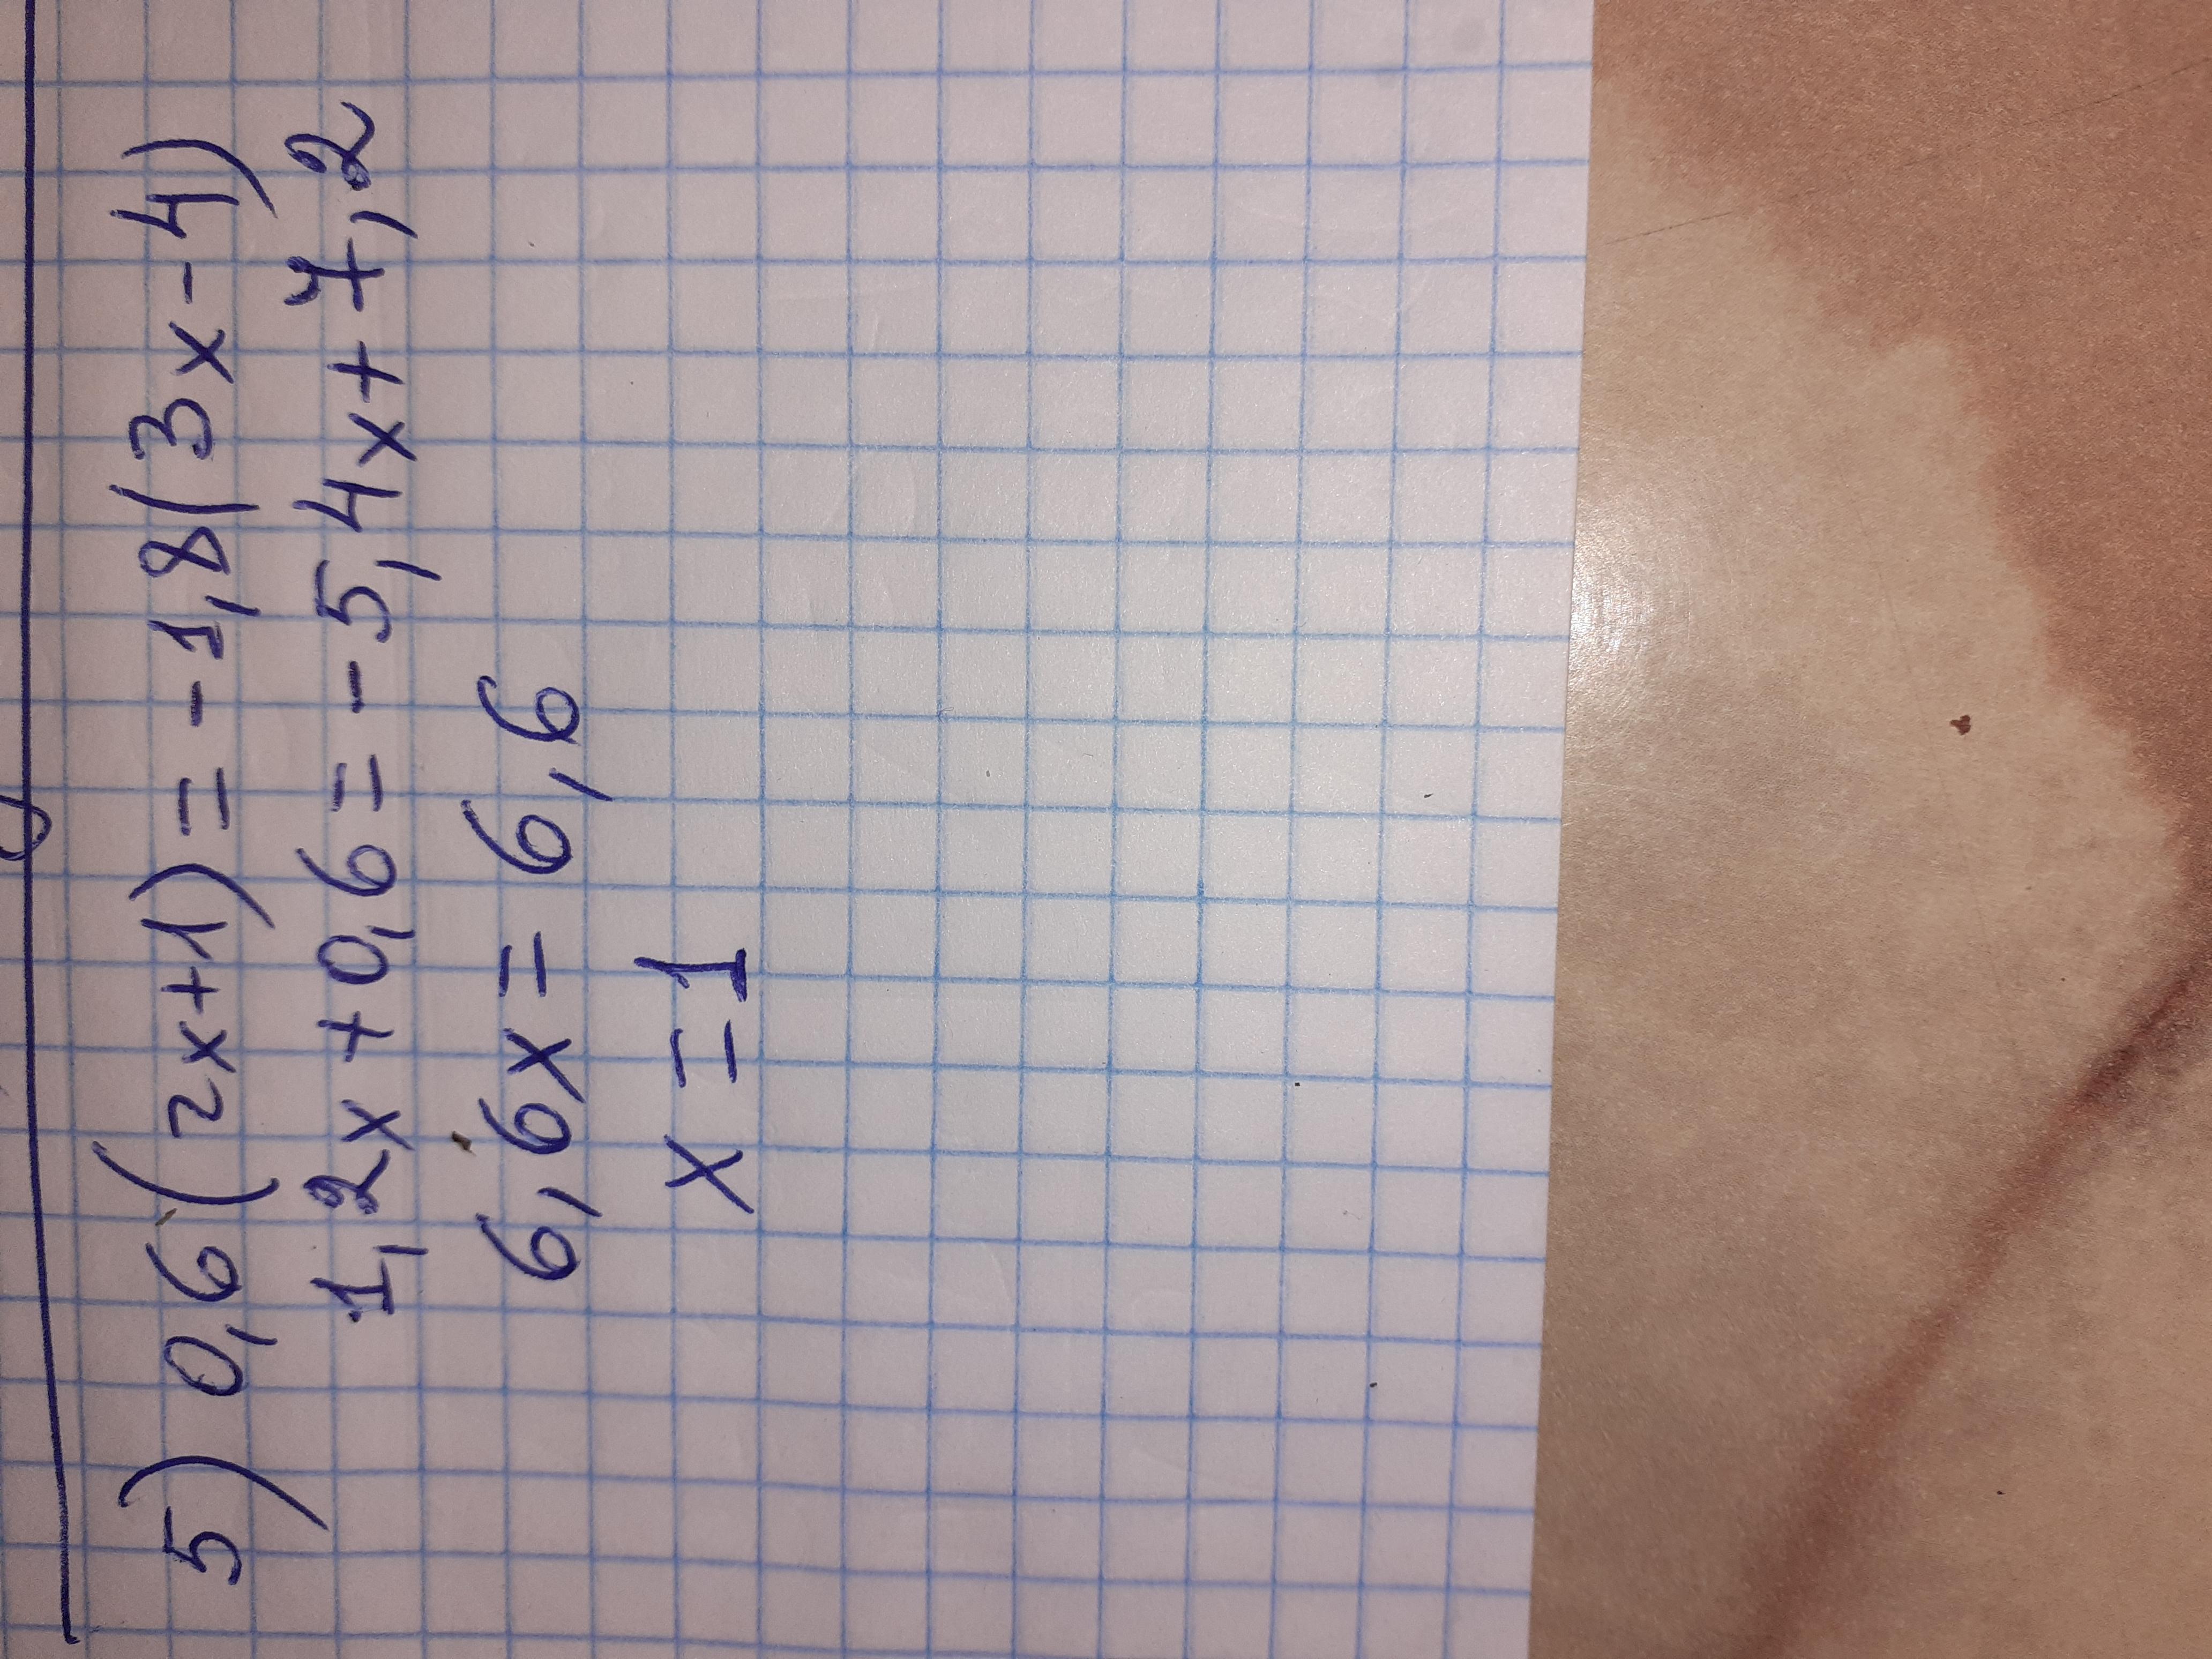 5) 0,6(2x+1)=-1,8(3x-4)
1,2x+0,6=-5,4x+7,2
6,6x=6,6
x=1